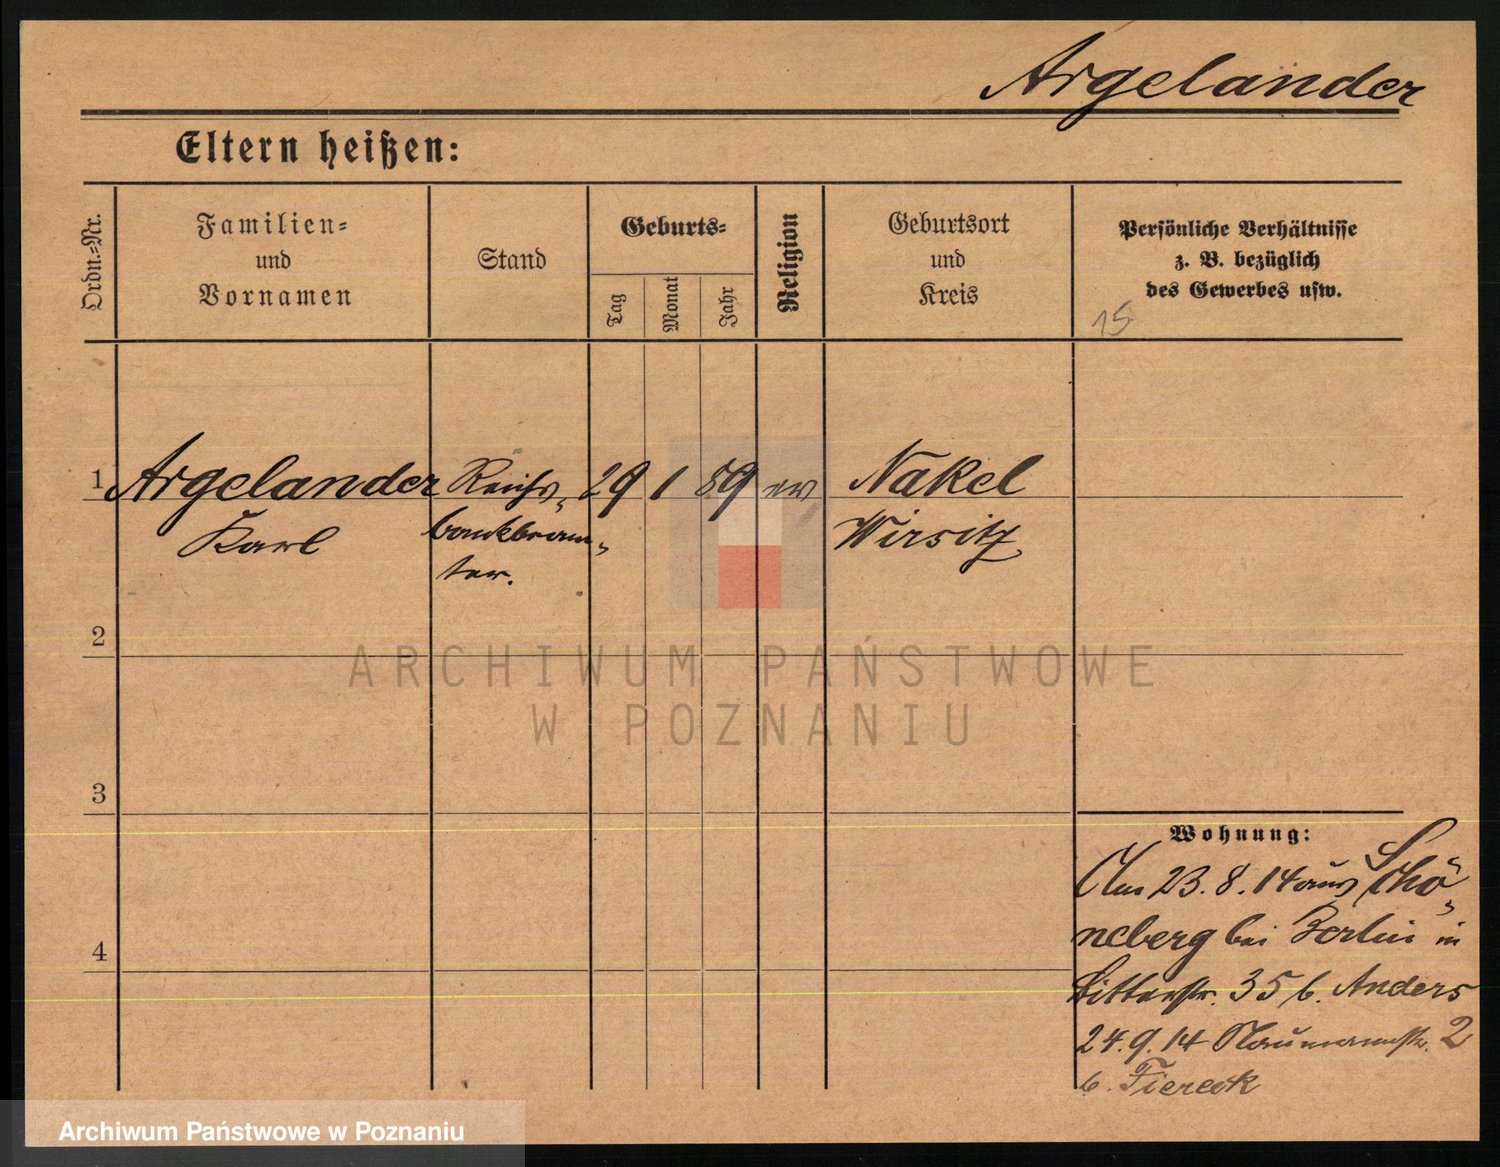 Argelander
Eltern heißen:
Ordn.-Nr.
Familien-
und
Vornamen
Stand
Geburts-
Tag
Monat
Jahr
Religion
Geburtsort
und
Kreis
Persönliche Verhältnisse
z. B. bezüglich
des Gewerbes usw.
15
1 Argelander Reichs- 29 1 89 ev Nakel
Karl bankbeam- Wirsitz
ter.
2
3
4
Wohnung:
Am 23. 8. 14 aus Schö-
neberg bei Berlin in
Ritterstr. 35 b. Anders
24. 9. 14 Naumannstr. 2
b. Fiereck
ARCHIWUM PAŃSTWOWE
W POZNANIU
Archiwum Państwowe w Poznaniu